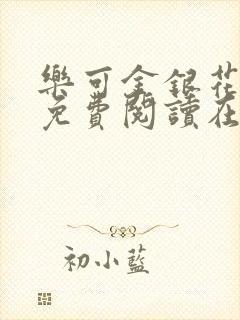 樂可金銀花
免費閱讀在
初小藍